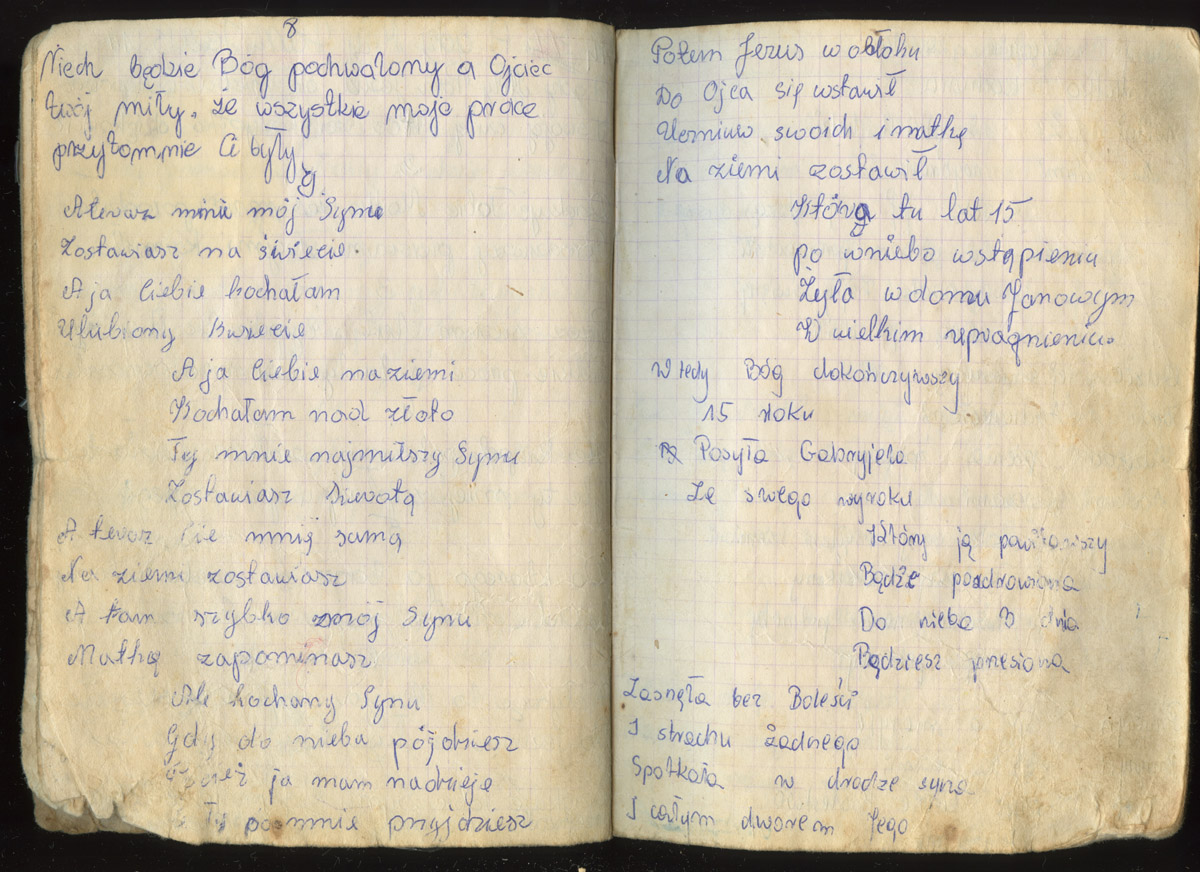 8
Niech będzie Bóg pochwalony a Ojciec
twój miły. że wszystkie moje prace
przytomnie Ci były
9.
A teraz mnie mój Synu
Zostawiasz na świecie.
A ja Ciebie kochałam
Ulubiony Kwiecie
A ja Ciebie na ziemi
Kochałam nad złoto
Ty mnie najmilszy Synu
Zostawiasz Sierotą
A teraz mnię samą
Na ziemi zostawiasz
A tam szybko mój Synu
Matkę zapominasz
Ale kochany Synu
Gdy do nieba pójdziesz
ja mam nadzieje
Ty po mnie przyjdziesz
Potem Jezus w obłoku
Do Ojca się wstawił
Uczniuw swoich i matkę
Na ziemi zostawił
Która tu lat 15
po wniebo wstąpieniu
Żyła w domu Janowym
W wielkim upragnieniu.
W tedy Bóg dokończywszy
15 roku
Posyła Gabryjela
Ze swego wyroku
Który ją powitawszy
Bądźże pozdrowiona
Do nieba 3 dnia
Będziesz wnesiona
Zasnęła bez Boleści
I strachu żadnego
Spotkała w drodze syna
I całym dworem Jego